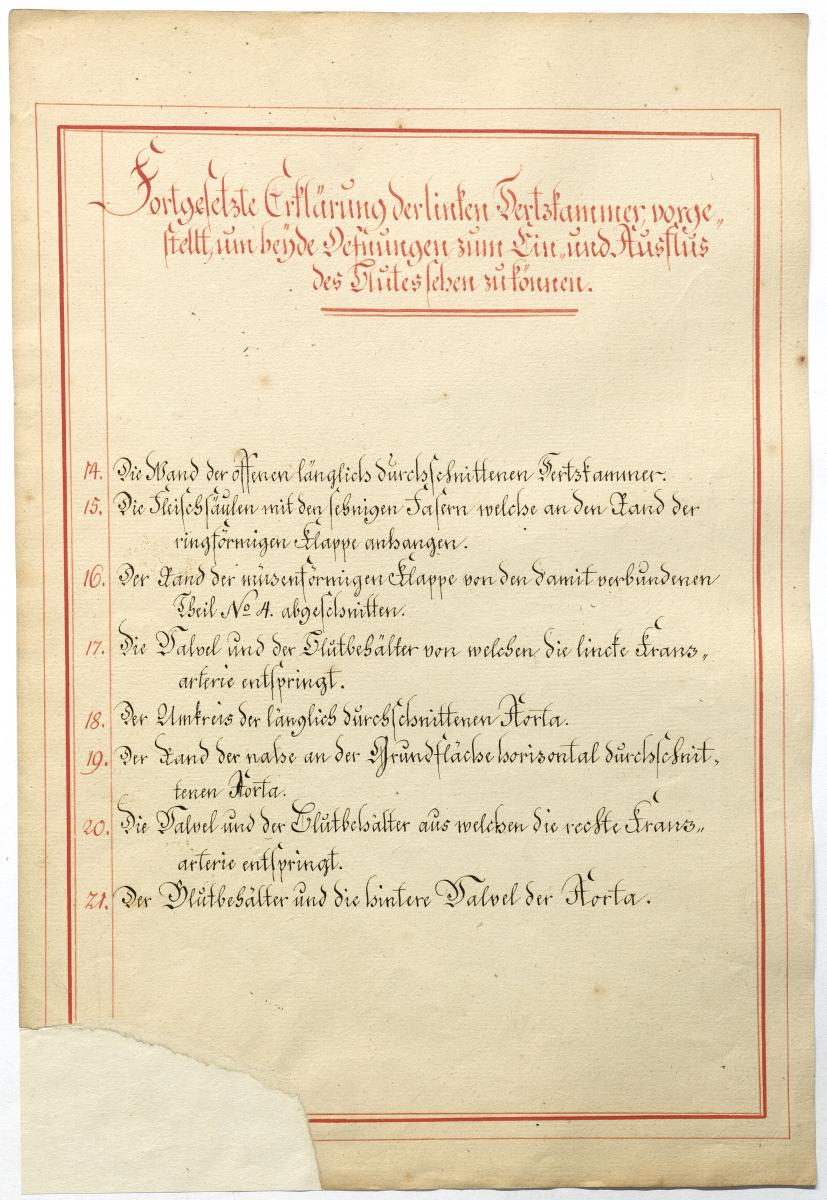 Fortgesetzte Erklärung der linken Hertzkammer, vorge„
stellt, um beÿde Oefnungen zum Ein„ und Ausflus
des Blutes sehen zu können.
14. Die Wand der offenen länglich durchschnittenen Hertzkammer.
15. Die Fleischsäulen mit den sehnigen Fasern welche an den Rand der
ringförmigen Klappe anhangen.
16. Der Rand der müzenförmigen Klappe von den damit verbundenen
Theil No 4. abgeschnitten.
17. Die Valvel und der Blutbehälter von welchen die lincke Kranz„
arterie entspringt.
18. Der Umkreis der länglich durchschnittenen Aorta.
19. Der Rand der nahe an der Grundfläche horizontal durchschnit„
tenen Aorta.
20. Die Valvel und der Blutbehälter aus welchen die rechte Kranz„
arterie entspringt.
21. Der Blutbehälter und die hintere Valvel der Aorta.